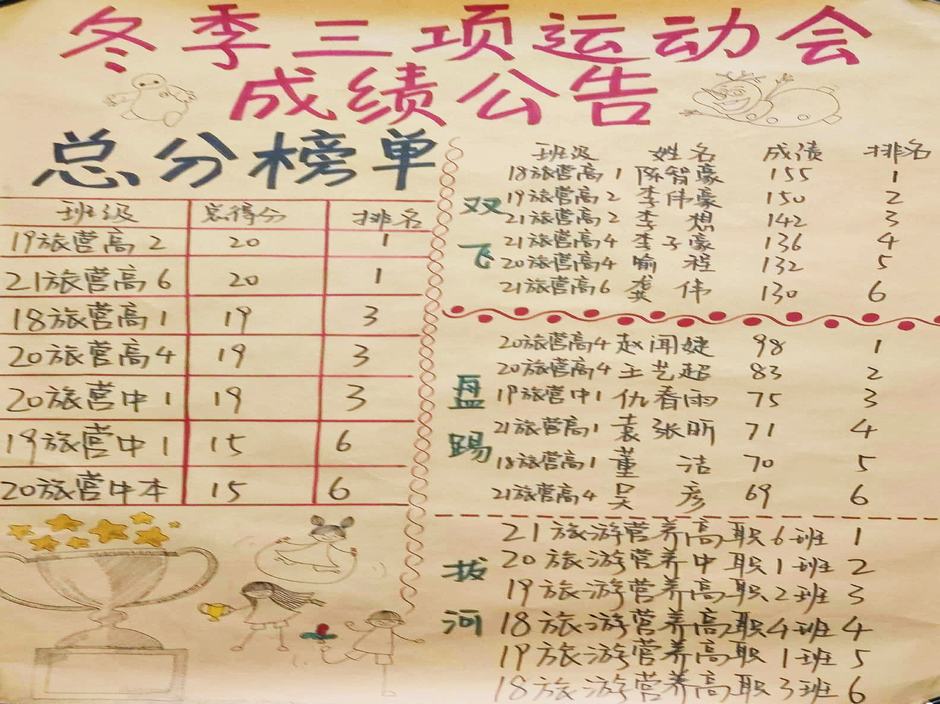 冬季三项运动会
成绩公告
总分榜单
班级 总得分 排名
19旅营高2 20 1
21旅营高6 20 1
18旅营高1 19 3
20旅营高4 19 3
20旅营中1 19 3
19旅营中1 15 6
20旅营中本 15 6
双飞
班级 姓名 成绩 排名
18旅营高1 陈智豪 155 1
19旅营高2 李伟豪 150 2
21旅营高2 李想 142 3
21旅营高4 李子豪 136 4
20旅营高4 喻程 132 5
21旅营高6 龚伟 130 6
盘踢
20旅营高4 赵闻婕 98 1
20旅营高4 王艺超 83 2
19旅营中1 仇春雨 75 3
21旅营高1 袁张昕 71 4
18旅营高1 董洁 70 5
21旅营高4 吴彦 69 6
拔河
21旅游营养高职6班 1
20旅游营养中职1班 2
19旅游营养高职2班 3
18旅游营养高职4班 4
19旅游营养高职1班 5
18旅游营养高职3班 6